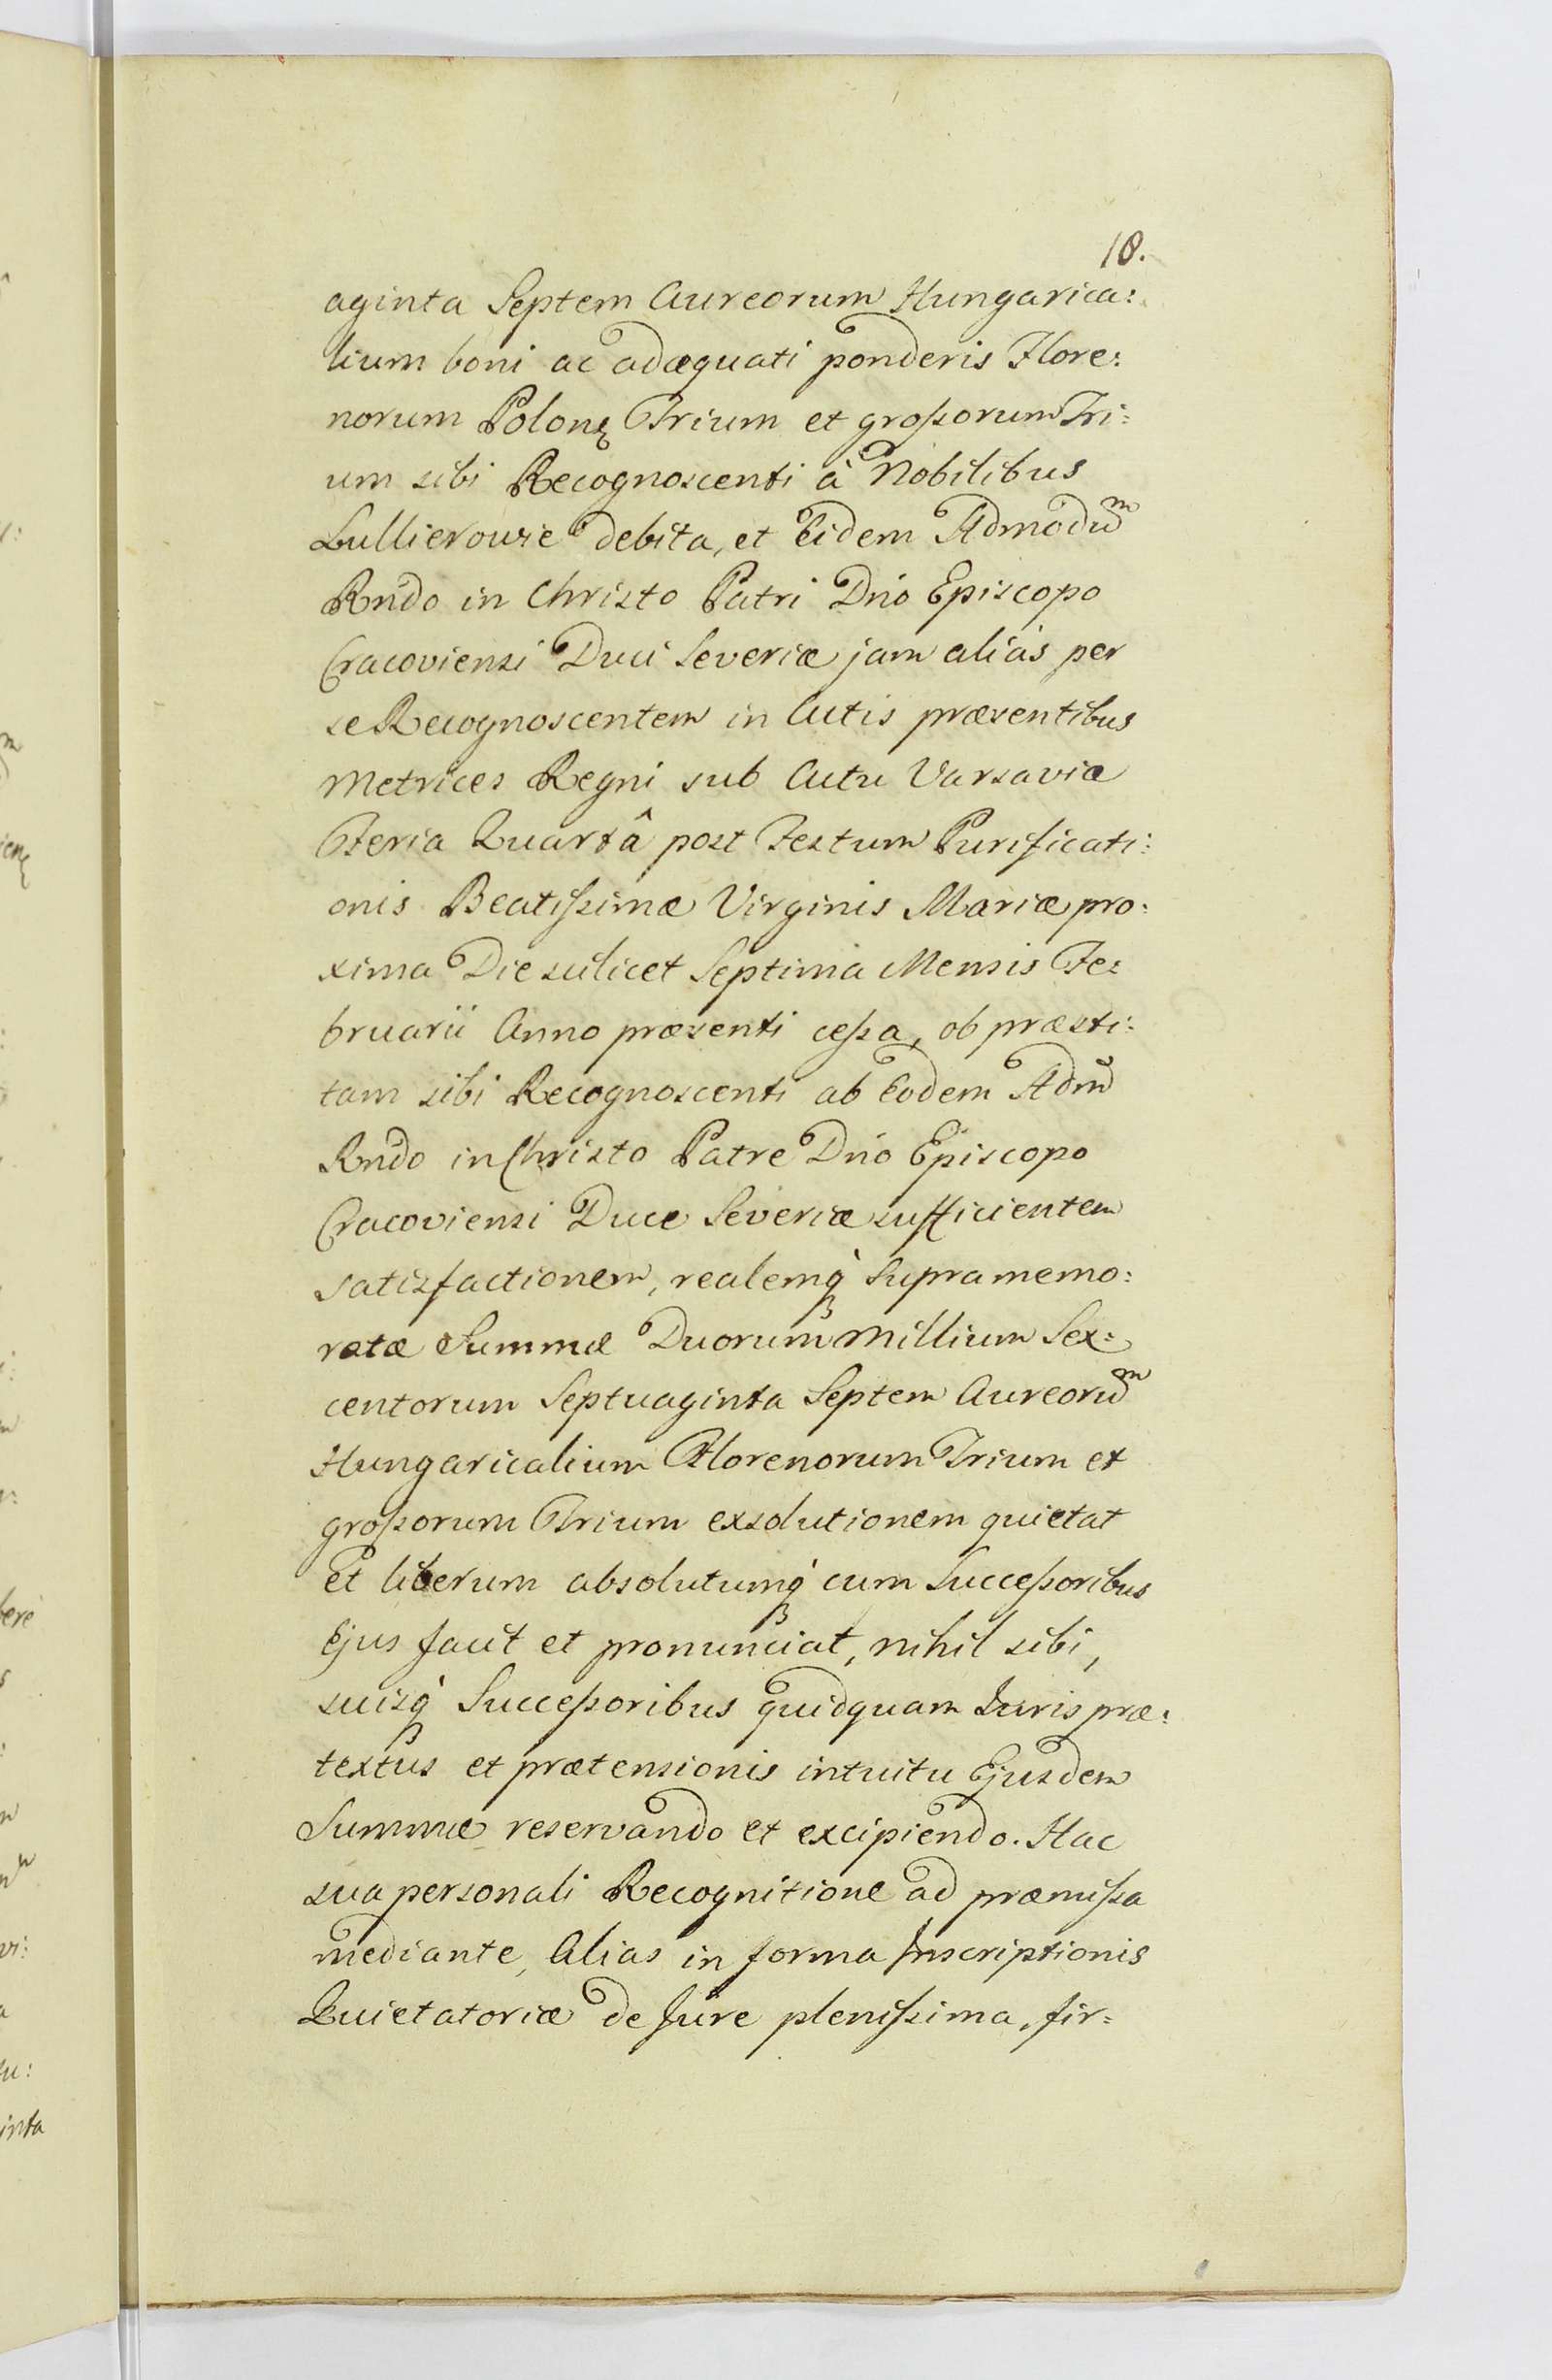 18.
aginta Septem Aureorum Hungarica:
lium boni ac adæquati ponderis Flore:
norum Polon: Trium et grossorum Tri:
um sibi Recognoscenti à Nobilibus
Lullierowie debita, et Eidem Admodum
Rndo in Christo Patri Dno Episcopo
Cracoviensi Duci Severiæ jam aliàs per
se Recognoscentem in Actis præsentibus
Metrices Regni sub Actu Varsaviæ
Feria Quartâ post Festum Purificati:
onis Beatissimæ Virginis Mariæ pro:
xima Die scilicet Septima Mensis Fe:
bruarii Anno præsenti cessa, ob præsti:
tam sibi Recognoscenti ab Eodem Adm̃
Rndo in Christo Patre Dno Episcopo
Cracoviensi Duce Severiæ sufficientem
satisfactionem, realemq̀ supramemo:
ratæ Summæ Duorum Millium Sex:
centorum Septuaginta Septem Aureorum
Hungaricalium Florenorum Trium et
grossorum Trium exsolutionem quietat
et liberum absolutumq̀ cum Successoribus
Ejus facit et pronunciat, nihil sibi,
suisq̀ Successoribus quidquam Juris præ:
textus et prætensionis intuitu Ejusdem
Summæ reservando et excipiendo. Hac
sua personali Recognitione ad præmissa
mediante, Alias in forma Inscriptionis
Quietatoriæ de Jure plenissima, fir: